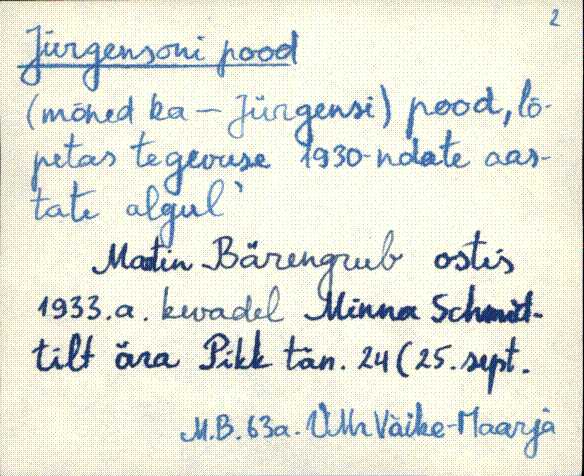 2
Jürgensoni pood
(mõned ka – Jürgensi) pood, lõ-
petas tegevuse 1930-ndate aas-
tate algul
Martin Bärengrub ostis
1933.a. kevadel Minna Schmid-
tilt ära Pikk tän. 24 (25.sept.
M.B. 63a. Väike-Maarja